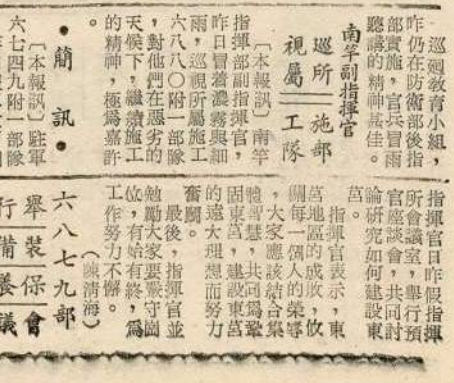 巡廻教育小組,
昨仍在防衛部後指
部實施,官兵冒雨
聽講的精神甚佳。
南竿副指揮官
巡所施部
視屬工隊
〔本報訊〕南竿
指揮部副指揮官,
昨日冒着濃霧與細
雨,巡視所屬施工
六八八〇附一部隊
,對他們在惡劣的
天候下,繼續施工
的精神,極爲嘉許
。
•簡訊•
〔本報訊〕駐軍
六七四九附一部隊
指揮官日昨假指揮
所會議室,舉行預
官座談會,共同討
論研究如何建設東
莒。
指揮官表示,東
莒地區的成敗,攸
關每一個人的榮辱
,大家應該結合集
體智慧,共同爲鞏
固東莒,建設東莒
的遠大理想而努力
奮鬪。
最後,指揮官並
勉勵大家要嚴守崗
位,有始有終,爲
工作努力不懈。
(陳清海)
六八七九部
舉裝保會
行備養議